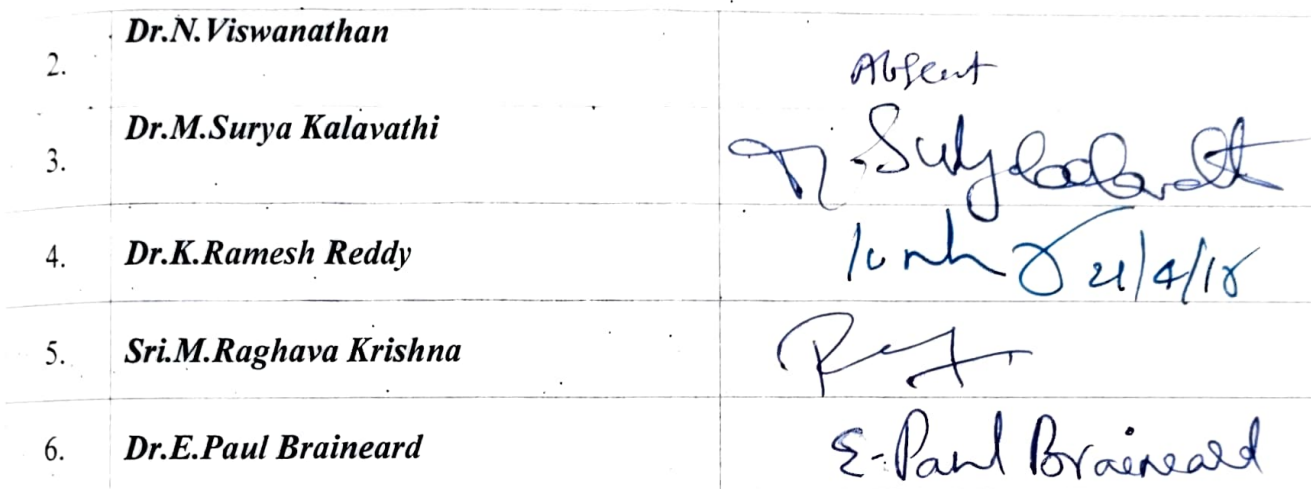 2. Dr.N.Viswanathan Absent
3. Dr.M.Surya Kalavathi M.Suryakalavathi
4. Dr.K.Ramesh Reddy 21/4/18
5. Sri.M.Raghava Krishna
6. Dr.E.Paul Braineard E.Paul Braineard